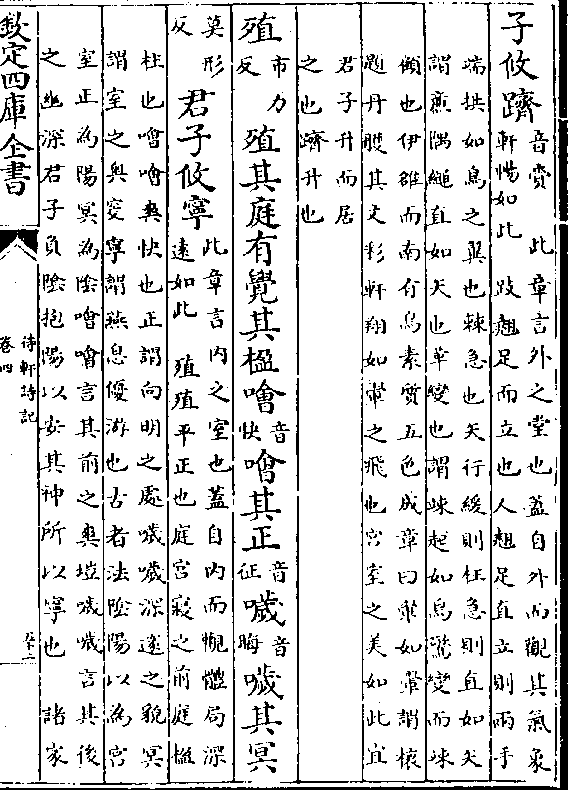 子攸躋音賫 此章言外之堂也蓋自外而觀其氣象
軒惕如此 跂翹足而立也人翹足直立則兩手
端拱如鳥之翼也棘急也矢行緩則枉急則直如矢
謂㢘隅繩直如矢也革變也謂竦起如鳥驚變而竦
傾也伊雒而南有鳥素質五色成章曰翬如翬謂榱
題丹雘其文彩軒翔如翬之飛也宫室之美如此宜
君子升而居
之也躋升也
殖市力反殖其庭有覺其楹噲音快噲其正音征噦音晦噦其冥
莫形反君子攸寧此章言内之室也蓋自内而觀體局深
邃如此 殖殖平正也庭宫寢之前庭楹
柱也噲噲爽快也正謂向明之處噦噦深邃之貌冥
謂室之奥窔寧謂燕息優游也古者法陰陽以為宫
室正為陽冥為陰噲噲言其前之爽塏噦噦言其後
之幽深君子負陰抱陽以安其神所以寧也 諸家
欽定四庫全書
待軒詩記
卷四